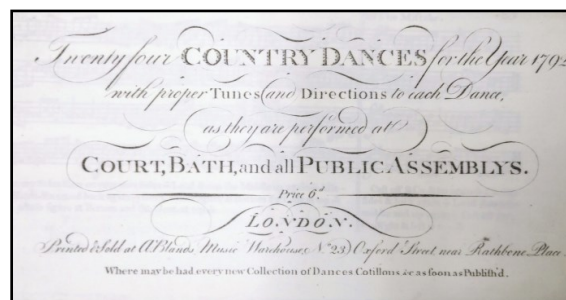 Twenty four COUNTRY DANCES for the Year 1792
with proper Tunes and Directions to each Dance,
as they are performed at
COURT, BATH, and all PUBLIC ASSEMBLYS.
Price 6.d
LONDON.
Printed & Sold at A. Blands Music Warehouse, No. 23, Oxford Street near Rathbone Place.
Where may be had every new Collection of Dances Cotillons &c as soon as Publish'd.